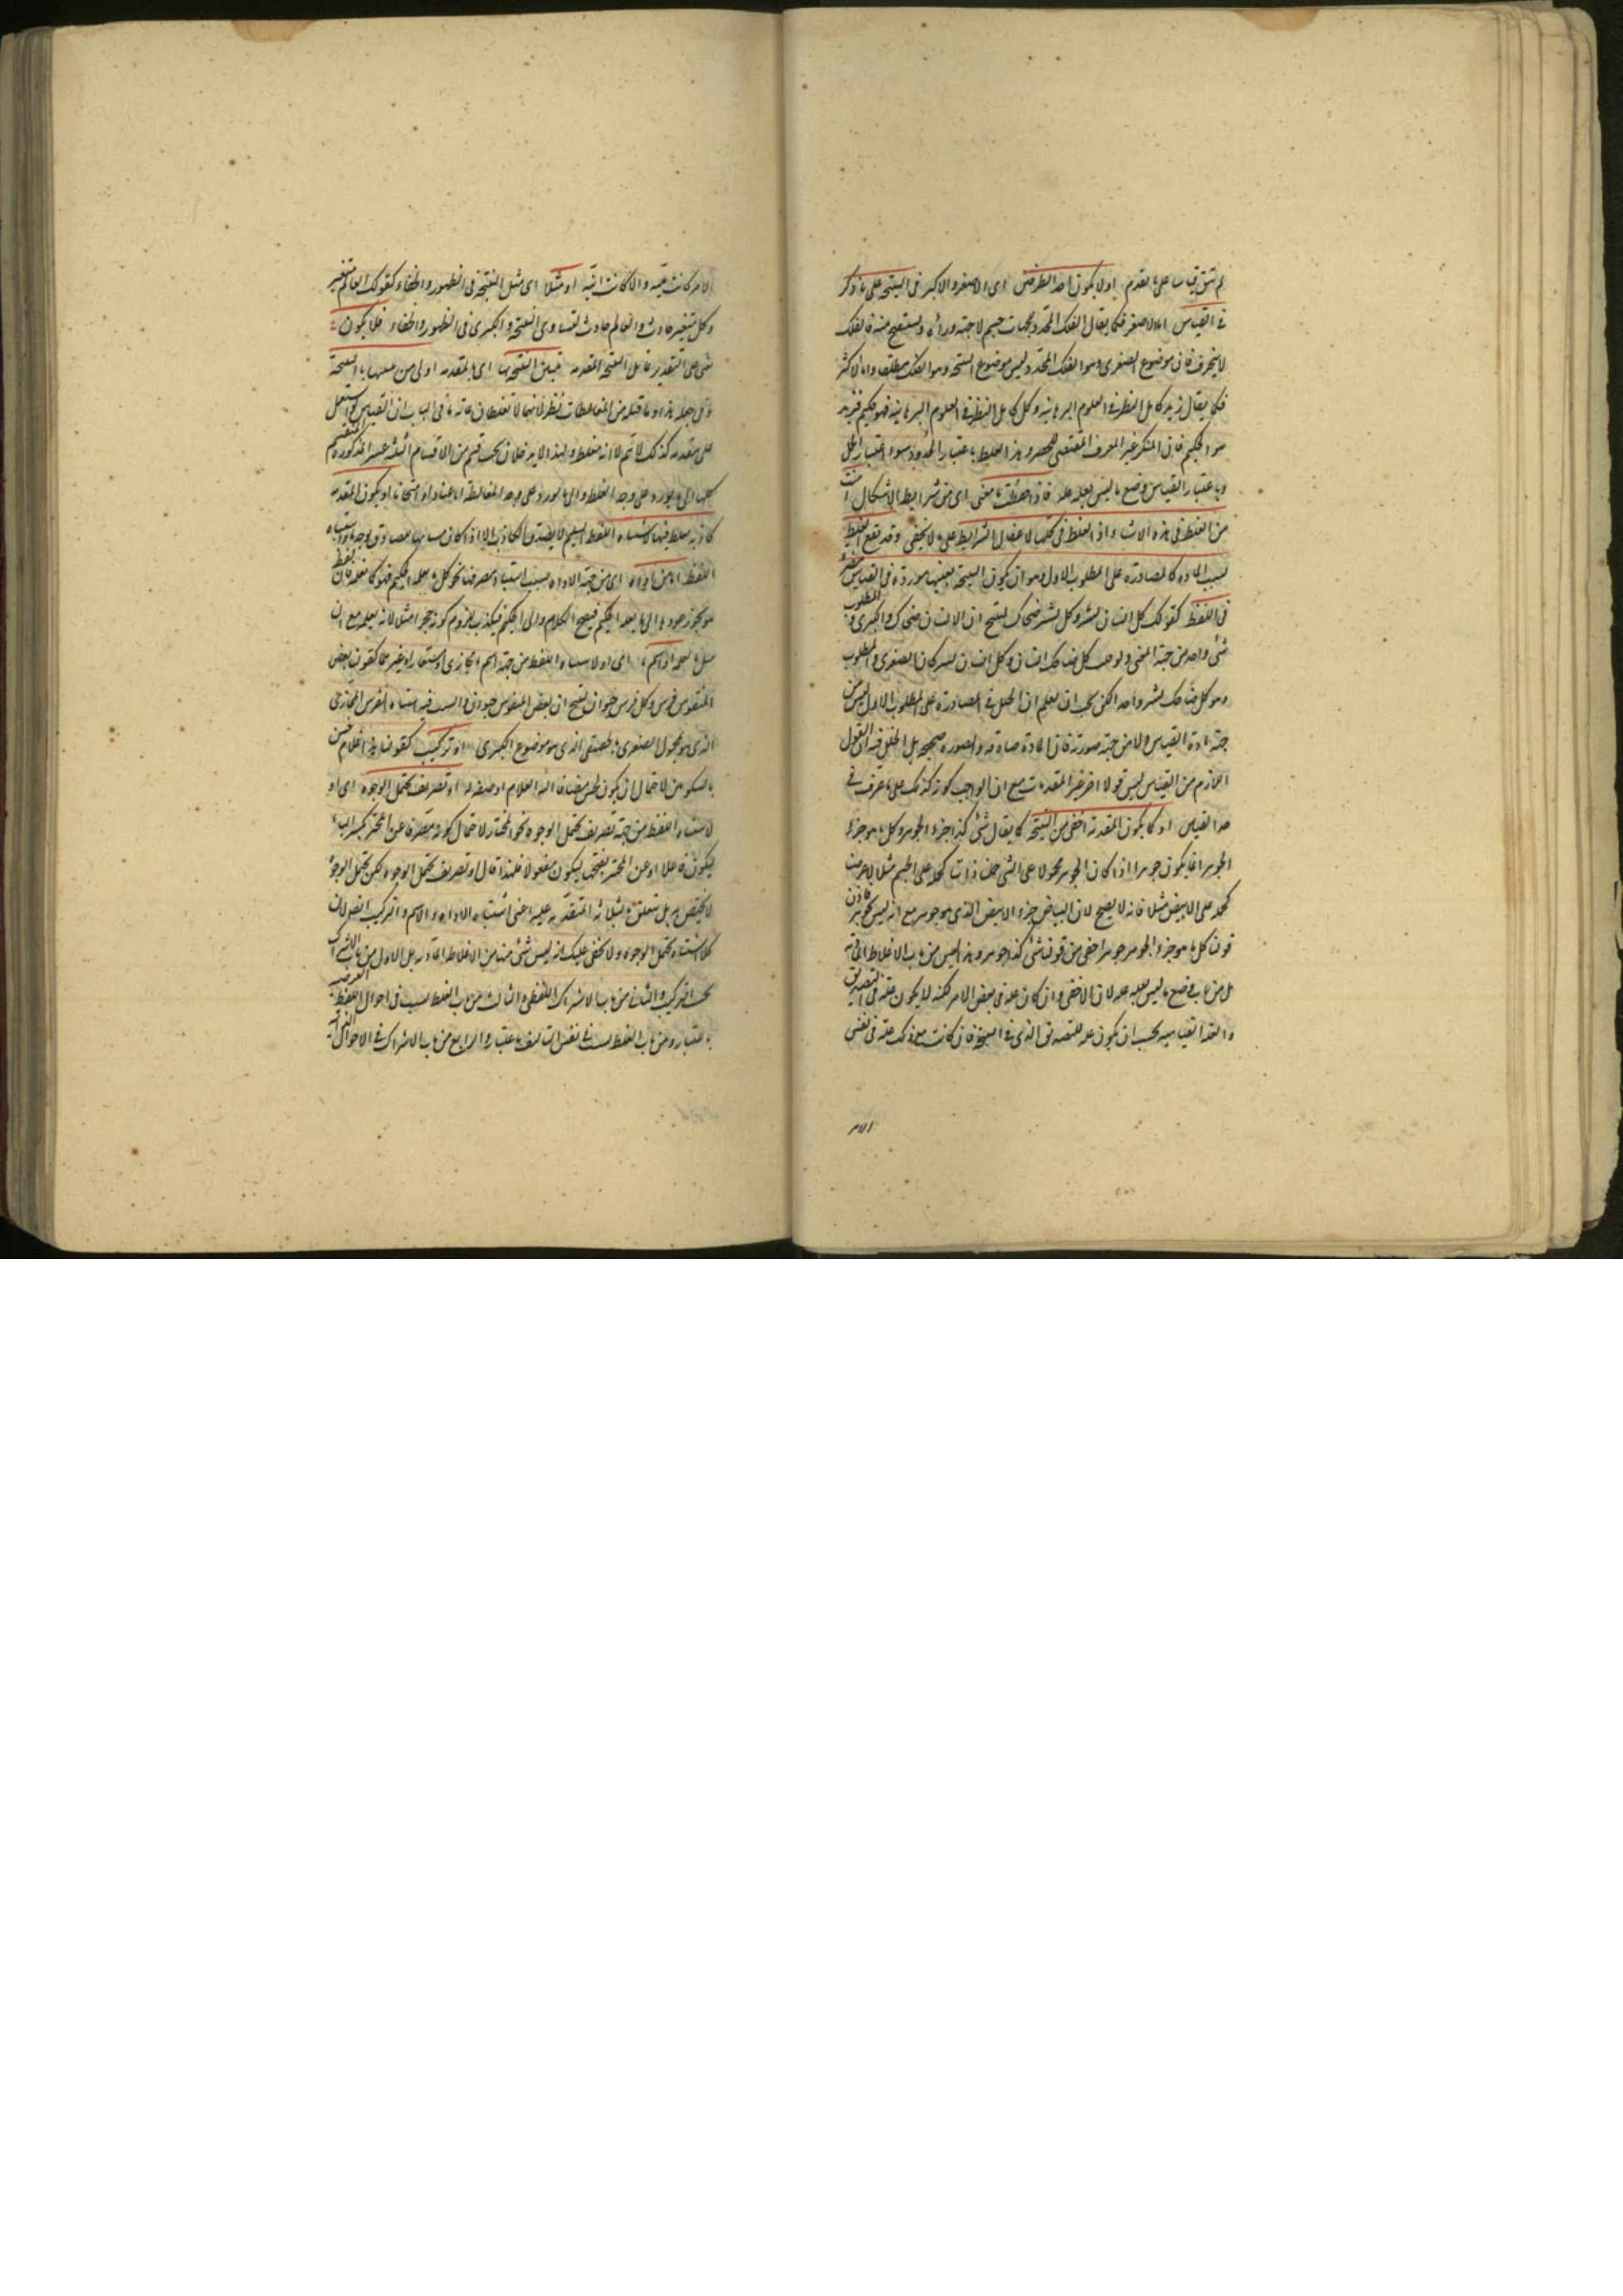 لم تبق قياسا على ما تقدم اولا يكون احد الطرفين اى الاصغر والاكبر فى النتيجة على ما ذكر
فى القياس اما الاصغر فكما يقال الفلك المحدد بجهات جسم لا جهة وراه ويستنتج منه فالفلك
لا ينخرق فان موضوع الصغرى هو الفلك المحدد وليس موضوع النتيجة وهو الفلك مطلقا واما الاكبر
فكما يقال زيد كامل النظر فى العلوم البرهانية وكل كامل النظر فى العلوم البرهانية فهو حكيم فزيد
هو الحكيم فان المنكر غير المعرف المقتضى للحصر وهذا الغلط باعتبار الحدود سوء اعتبار الحمل
وباعتبار القياس وضع ما ليس بعلة علة فاذا حفظت ما مضى اى من شرايط الاشكال امنت
من الغلط فى هذه الاشياء اذ الغلط فى كلها لاغفال الشرايط على ما لا يخفى وقد يقع الغلط
بسبب المادة كالمصادرة على المطلوب الاول وهو ان يكون النتيجة بعينها موردة فى القياس مغيرة
فى اللفظ كقولك كل انسان بشر وكل بشر ضحاك لينتج ان الانسان ضحاك والكبرى والمطلوب
شئ واحد من جهة المعنى ولو جعلت كل ضاحك انسان وكل انسان بشر كان الصغرى والمطلوب
وهو كل ضاحك بشر واحدا لكن يجب ان يعلم ان الخلل فى المصادرة على المطلوب الاول ليس من
جهة مادة القياس ولا من جهة صورته فان المادة صادقة والصورة صحيحة بل الخلل فيه ان القول
اللازم من القياس ليس قولا اخر غير المقدمات مع ان الواجب كونه كذلك على ما عرفت فى
حد القياس او كما يكون المقدمة اخفى من النتيجة كما يقال شئ كذا جزء الجوهر وكل ما هو جزء
الجوهر انما يكون جوهرا اذا كان الجوهر محمولا على الشئ حمل ذات كحمله على الجسم مثلا لا عرضيا
كحمله على الابيض مثلا فانه لا يصح لان البياض جزء الابيض الذى هو جوهر مع انه ليس بجوهر فاذن
قولنا كل ما هو جزء الجوهر جوهر اخفى من قولنا شئ كذا جوهر وهذا ليس من باب الاغلاط المادية
بل من باب وضع ما ليس بعلة علة لان الاخفى وان كان علة فى بعض الامر لكنه لا يكون علة فى التصديق
والعقد القياسية يجب ان يكون علة للتصديق الذى فى النتيجة فان كانت مع ذلك علة فى نفس
الامر
الامر كانت لمية والا كانت انية او مثلا اى مثل النتيجة فى الظهور والخفاء كقولك العالم متغير
وكل متغير حادث والعالم حادث لتساوى النتيجة والكبرى فى الظهور والخفاء فلا يكون
شئ على التقدير تاليا النتيجة المقدمة تبين النتيجة بها اى بالمقدمة اولى من بيانها بالنتيجة
وفى جعله هذا وما قبله من المغالطات نظر لانهما لا تغلطان غاية ما فى الباب ان القياس لو استعمل
على مقدمة كذلك لا يتم لا انه مغلط ولهذا لا يدخلان تحت قسم من الاقسام الثلثة عشر المذكورة المنقسم
كلها الى ما يورد على وجه الغلط والى ما يورد على وجه المغالطة اما عنادا او امتحانا او يكون المقدمة
كاذبة يغلط فيها لاشتباه اللفظ السليم لا يصدق الكاذب الا اذا كان مشابها لصادق بوجه واشتباه
اللفظ اما من اداة اى من جهة الاداة بسبب اشتباه مصرفها نحو كل ما يعلمه الحكيم فهو كما يعلمه فان لفظ
هو يجوز عوده الى ما يعلمه الحكيم فيصح الكلام والى الحكيم فيكذب للزوم كونه حجرا مثلا لانه يعلمه مع ان
مثل ما يعلمه او اسم اى او لاشتباه اللفظ من جهة اسم مجازى او مستعار او غيرهما كقولنا بعض
المنقوش فرس وكل فرس حيوان ينتج ان بعض المنقوش حيوان والسبب فيه اشتباه الفرس المجازى
الذى هو محمول الصغرى بالحقيقى الذى هو موضوع الكبرى او تركيب كقولنا هذا غلام حسن
بالسكون لاحتمال ان يكون الحسن مضافا اليه الغلام او صفة له او تصريف يحتمل الوجوه اى او
لاشتباه اللفظ من جهة تصريف يحتمل الوجوه نحو المختار لاحتمال كونه متصرفا عن المختير بكسر الياء
ليكون فاعلا او عن المختير بفتحها ليكون مفعولا فلهذا قال او تصريف يحتمل الوجوه لكن يحتمل الوجوه
لا يختص به بل يتعلق بالثلاثة المتقدمة عليه اعنى اشتباه الاداة والاسم والتركيب ايضا لان
كلا اشتباه يحتمل الوجوه ولا يخفى عليك انه ليس شئ منها من الاغلاط المادية بل الاول من باب الاشتراك
بحسب التركيب والثانى من باب الاشتراك اللفظى والثالث من باب الغلط بسبب فى احوال اللفظ العرضية
باعتبار ومن باب الغلط بسبب فى نفس التاليف باعتبار والرابع من باب الاشتراك فى الاحوال الذاتية